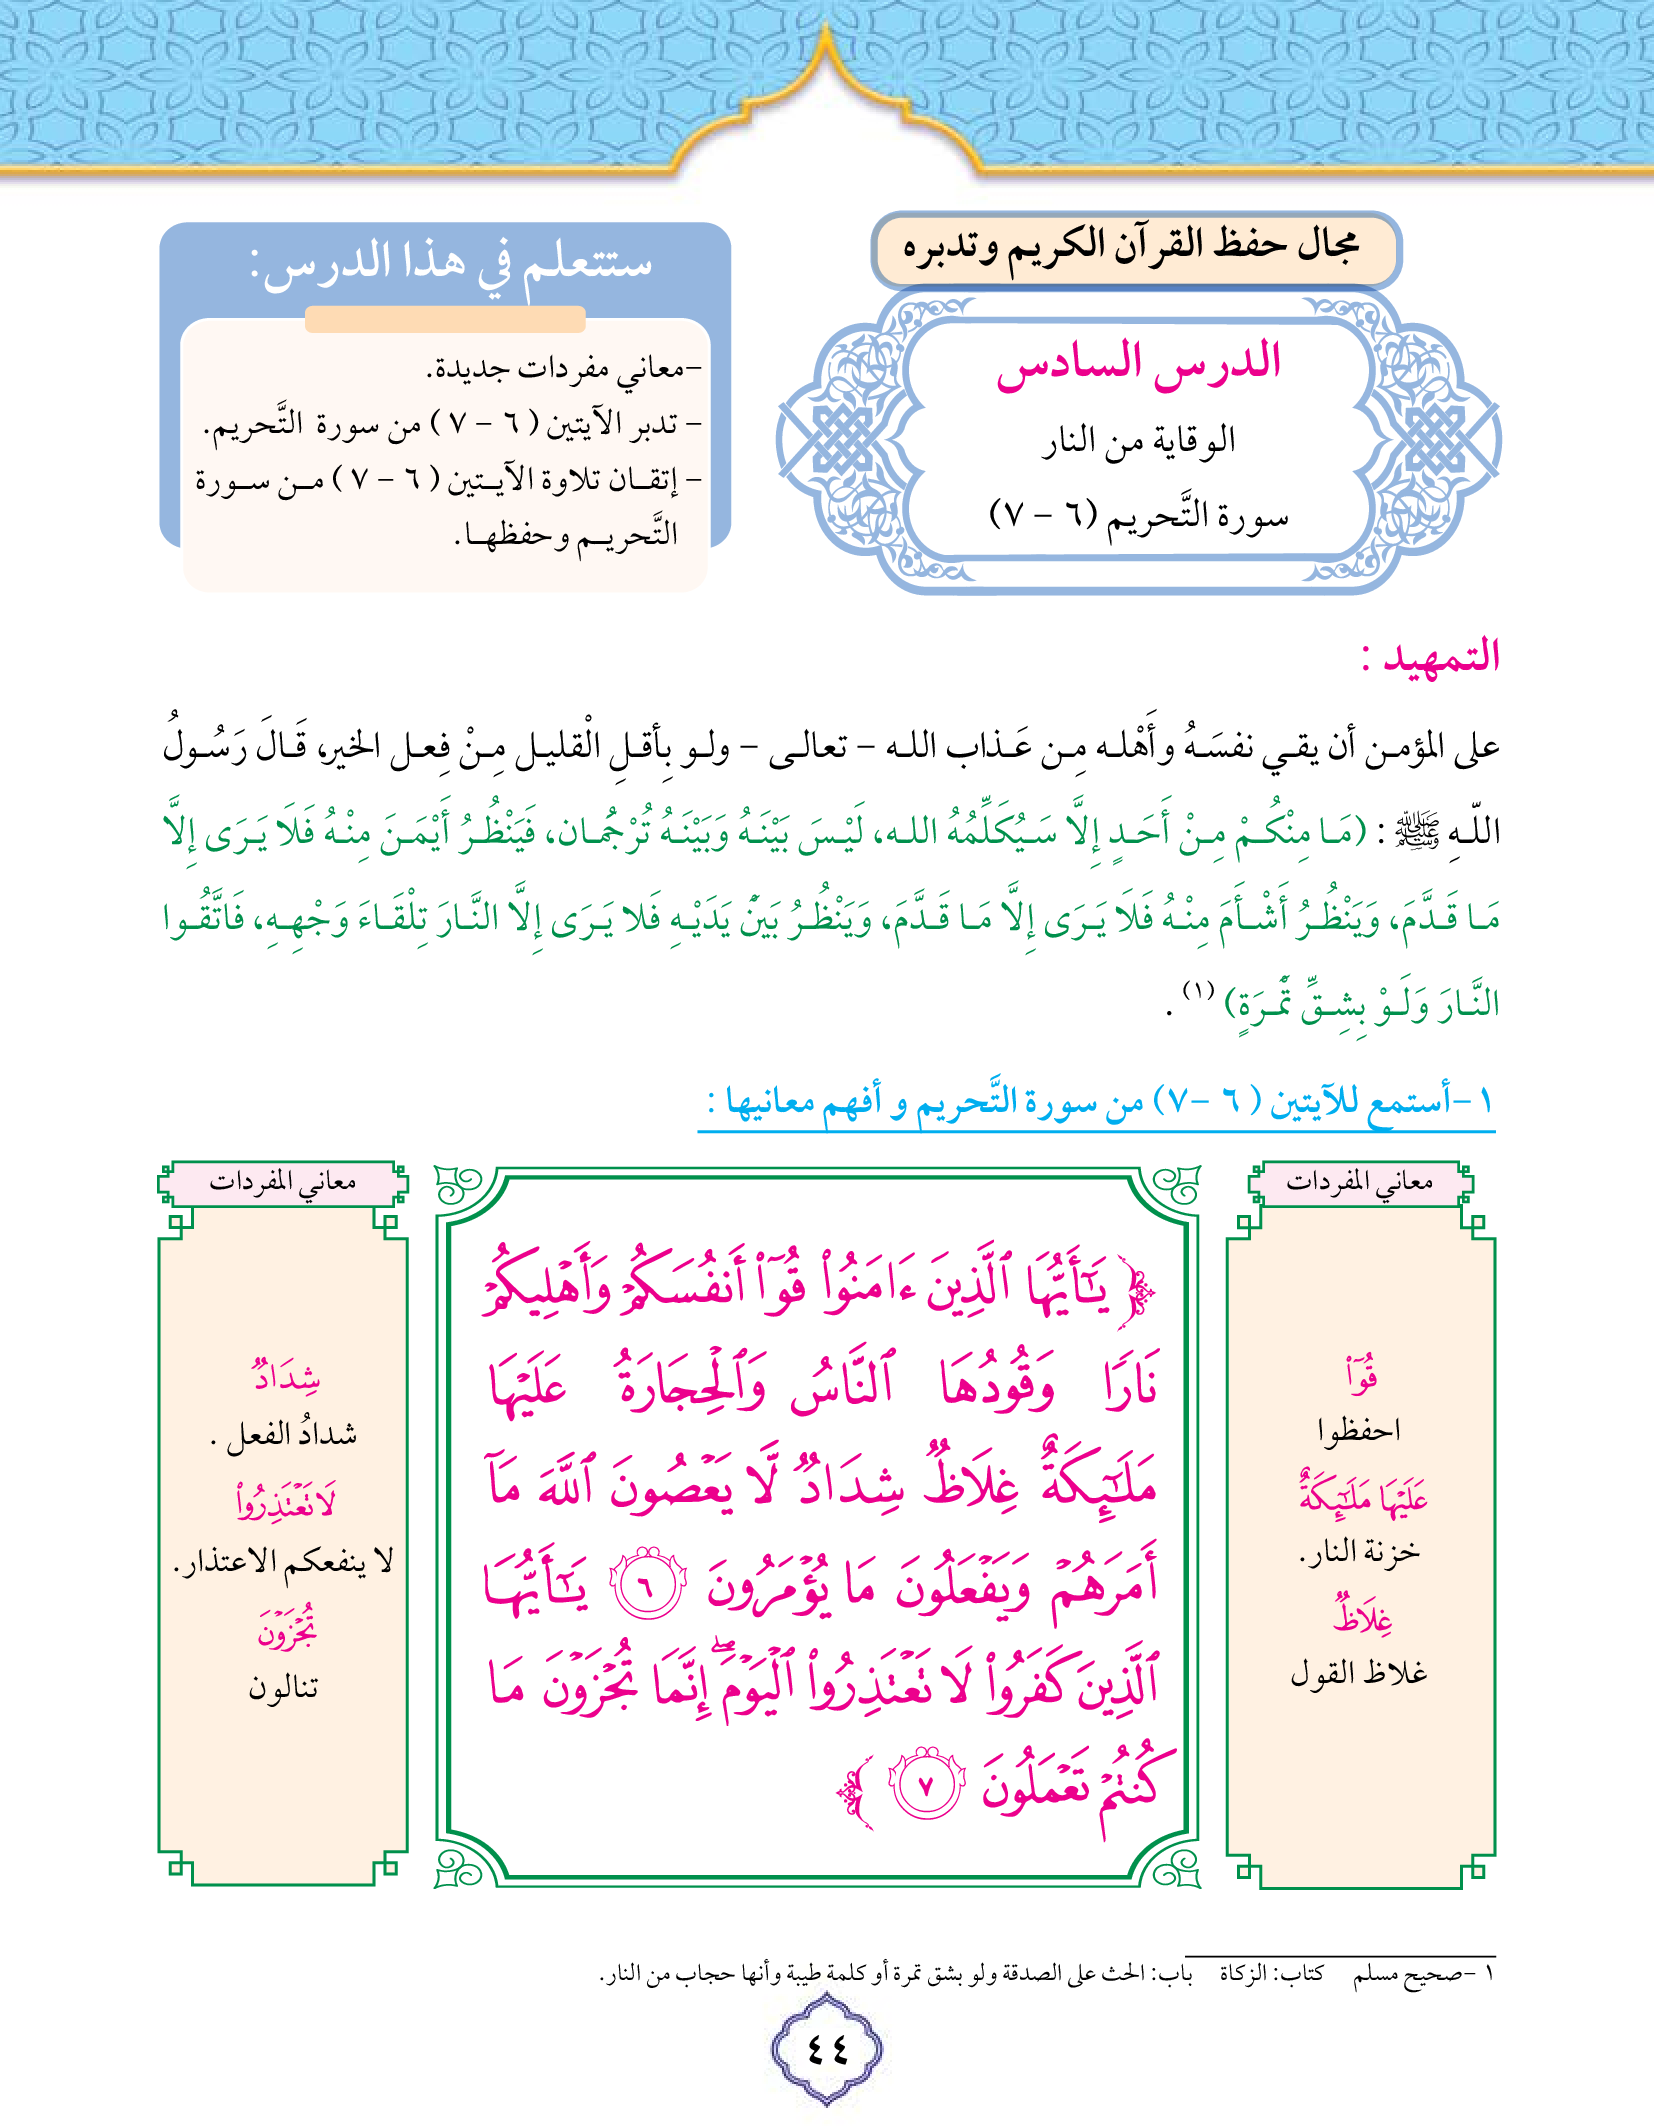 مجال حفظ القرآن الكريم وتدبره
الدرس السادس
الوقاية من النار
سورة التَّحريم (٦ – ٧)
ستتعلم في هذا الدرس:
–معاني مفردات جديدة.
– تدبر الآيتين ( ٦ – ٧ ) من سورة التَّحريم.
– إتقان تلاوة الآيتين ( ٦ – ٧ ) من سورة
التَّحريم وحفظها.
التمهيد :
على المؤمن أن يقي نفسَهُ وأَهْله مِن عَذاب الله – تعالى – ولو بِأقلِ الْقليل مِنْ فِعل الخير، قَالَ رَسُولُ
اللّهِ ﷺ : (مَا مِنْكُمْ مِنْ أَحَدٍ إِلَّا سَيُكَلِّمُهُ الله، لَيْسَ بَيْنَهُ وَبَيْنَهُ تُرْجُمان، فَيَنْظُرُ أَيْمَنَ مِنْهُ فَلَا يَرَى إِلَّا
مَا قَدَّمَ، وَيَنْظُرُ أَشْأَمَ مِنْهُ فَلَا يَرَى إِلَّا مَا قَدَّمَ، وَيَنْظُرُ بَيْنَ يَدَيْهِ فَلا يَرَى إِلَّا النَّارَ تِلْقَاءَ وَجْهِهِ، فَاتَّقُوا
النَّارَ وَلَوْ بِشِقِّ تَمْرَةٍ) (١) .
١–أستمع للآيتين ( ٦ –٧) من سورة التَّحريم و أفهم معانيها :
معاني المفردات
قُوٓاْ
احفظوا
عَلَيۡهَا مَلَٰٓئِكَةٌ
خزنة النار.
غِلَاظٞ
غلاظ القول
﴿ يَٰٓأَيُّهَا ٱلَّذِينَ ءَامَنُواْ قُوٓاْ أَنفُسَكُمۡ وَأَهۡلِيكُمۡ
نَارٗا وَقُودُهَا ٱلنَّاسُ وَٱلۡحِجَارَةُ عَلَيۡهَا
مَلَٰٓئِكَةٌ غِلَاظٞ شِدَادٞ لَّا يَعۡصُونَ ٱللَّهَ مَآ
أَمَرَهُمۡ وَيَفۡعَلُونَ مَا يُؤۡمَرُونَ ٦ يَٰٓأَيُّهَا
ٱلَّذِينَ كَفَرُواْ لَا تَعۡتَذِرُواْ ٱلۡيَوۡمَۖ إِنَّمَا تُجۡزَوۡنَ مَا
كُنتُمۡ تَعۡمَلُونَ ٧ ﴾
معاني المفردات
شِدَادٞ
شدادُ الفعل .
لَا تَعۡتَذِرُواْ
لا ينفعكم الاعتذار.
تُجۡزَوۡنَ
تنالون
١ –صحيح مسلم كتاب: الزكاة باب: الحث على الصدقة ولو بشق تمرة أو كلمة طيبة وأنها حجاب من النار.
٤٤